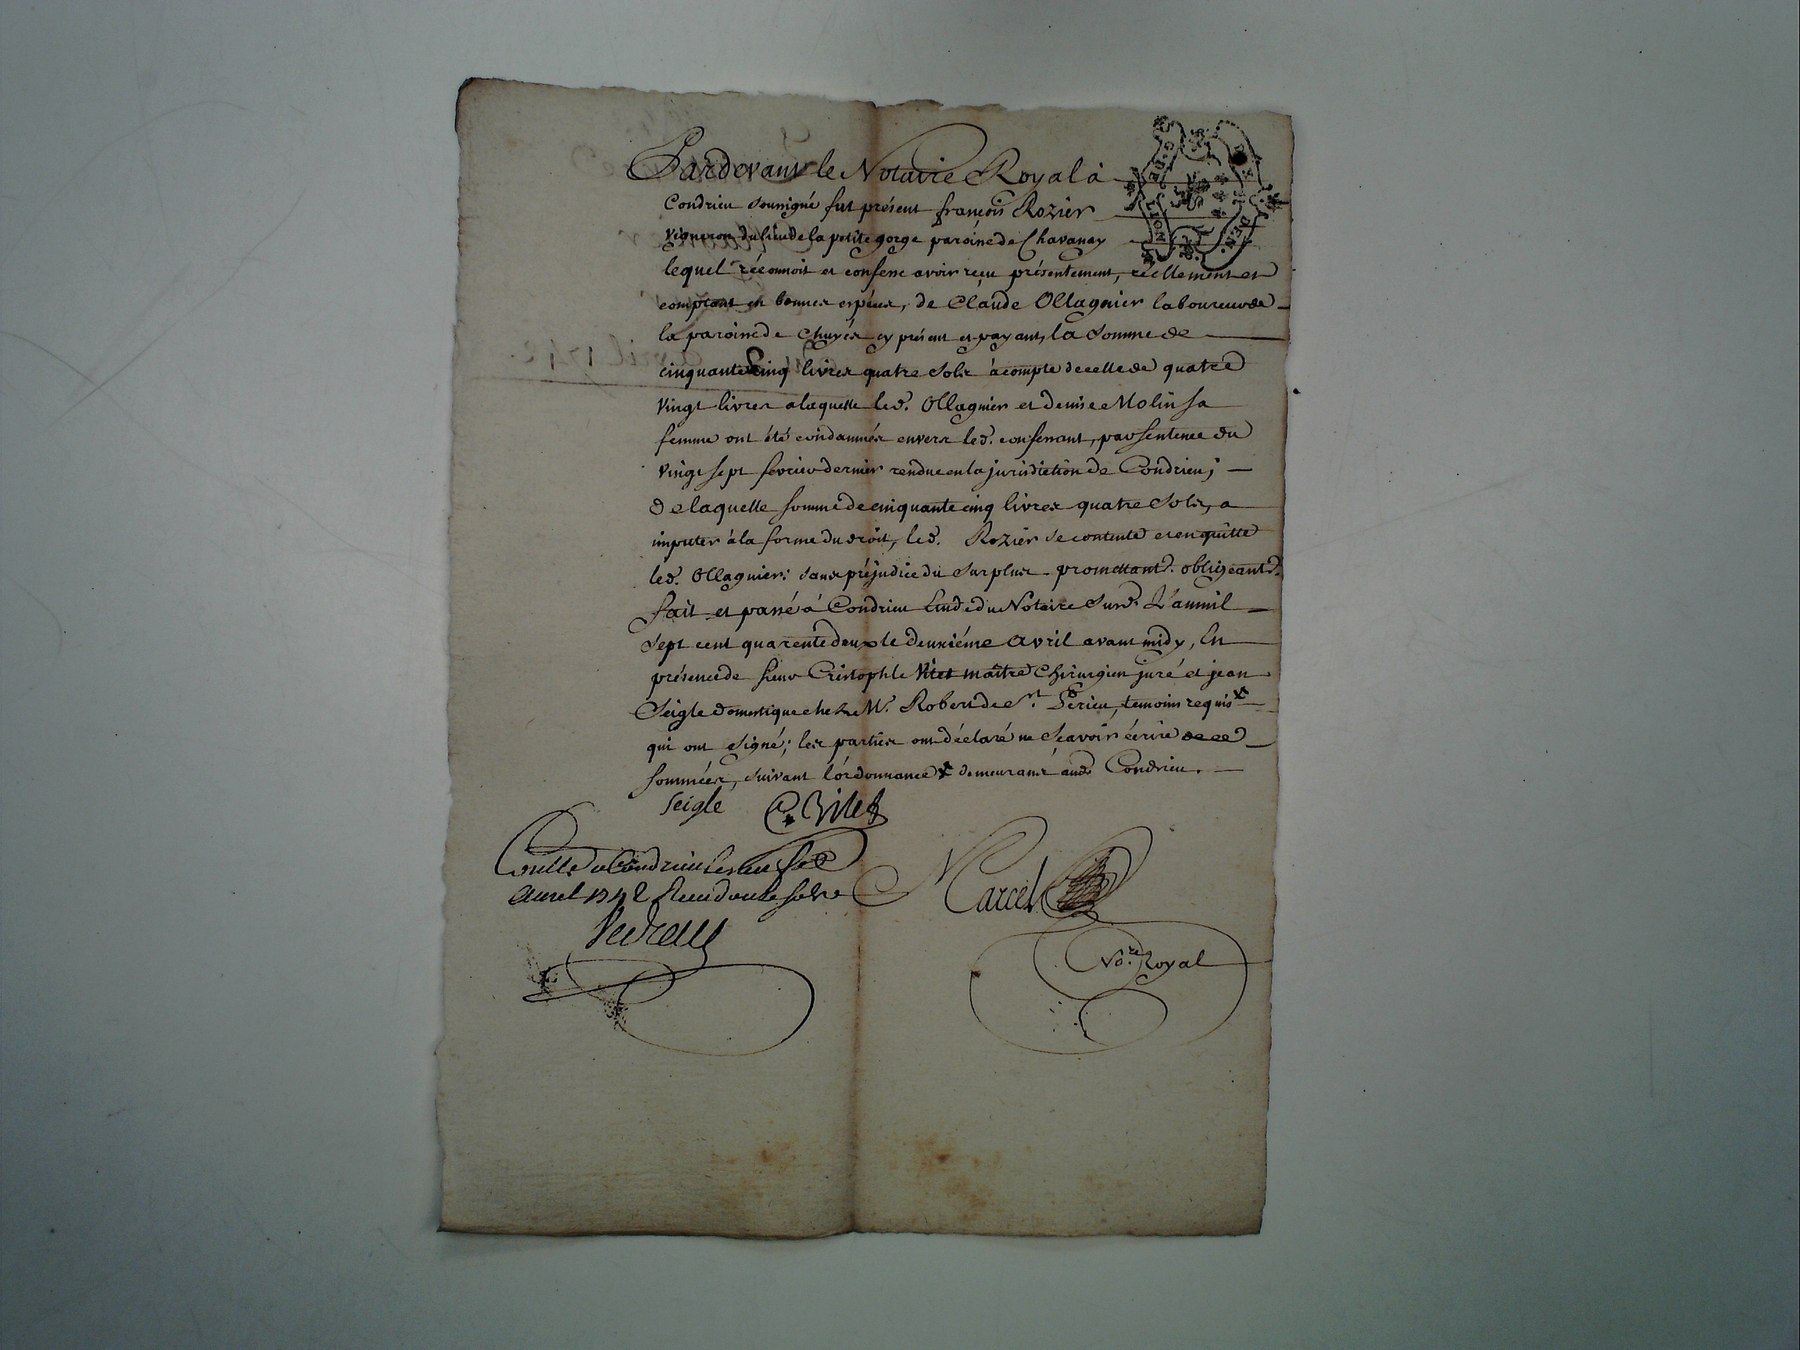 Pardevant le Notaire Royal à
Condrieu sousigné fut présent françois Rozier
vigneron du lieu de la petite gorge paroisse de Chavanay
lequel réconnoit et confesse avoir reçu présentement, réellement et
comptant en bonnes espéces, de Claude Ollagnier laboureur de
la paroisse de Chuyés cy présent et payant, la somme de
cinquante Cinq livres quatre sols àcompte de celle de quatre
vingt livres a laquelle led. Ollagnier et denise Molin sa
femme ont été condamnés envers led. confessant, par sentence du
vingt sept fevrier dernier rendue en la jurisdiction de Condrieu;
de laquelle somme de cinquante cinq livres quatre sols, a
imputer à la forme du droit, led. Rozier se contente et en quitte
led. Ollagnier: sans préjudice du surplus. promettant. obligeant.
fait et passé à Condrieu Etude du Notaire susd. L'an mil
sept cent quarente deux le deuxiéme avril avant midy, En
présence de sieur Cristophle Vitet maître chirurgien juré et jean
Seigle domestique chez Mr. Robert de St. , temoins requis
qui ont signé; les parties ont déclaré ne scavoir écrire de ce
sommées, suivant l'ordonnance demeurans aud. Condrieu.
Seigle C. Vitet
Conllé a Condrieu le
avril 1742 Reçu douze sols
Marcel
Nore. Royal